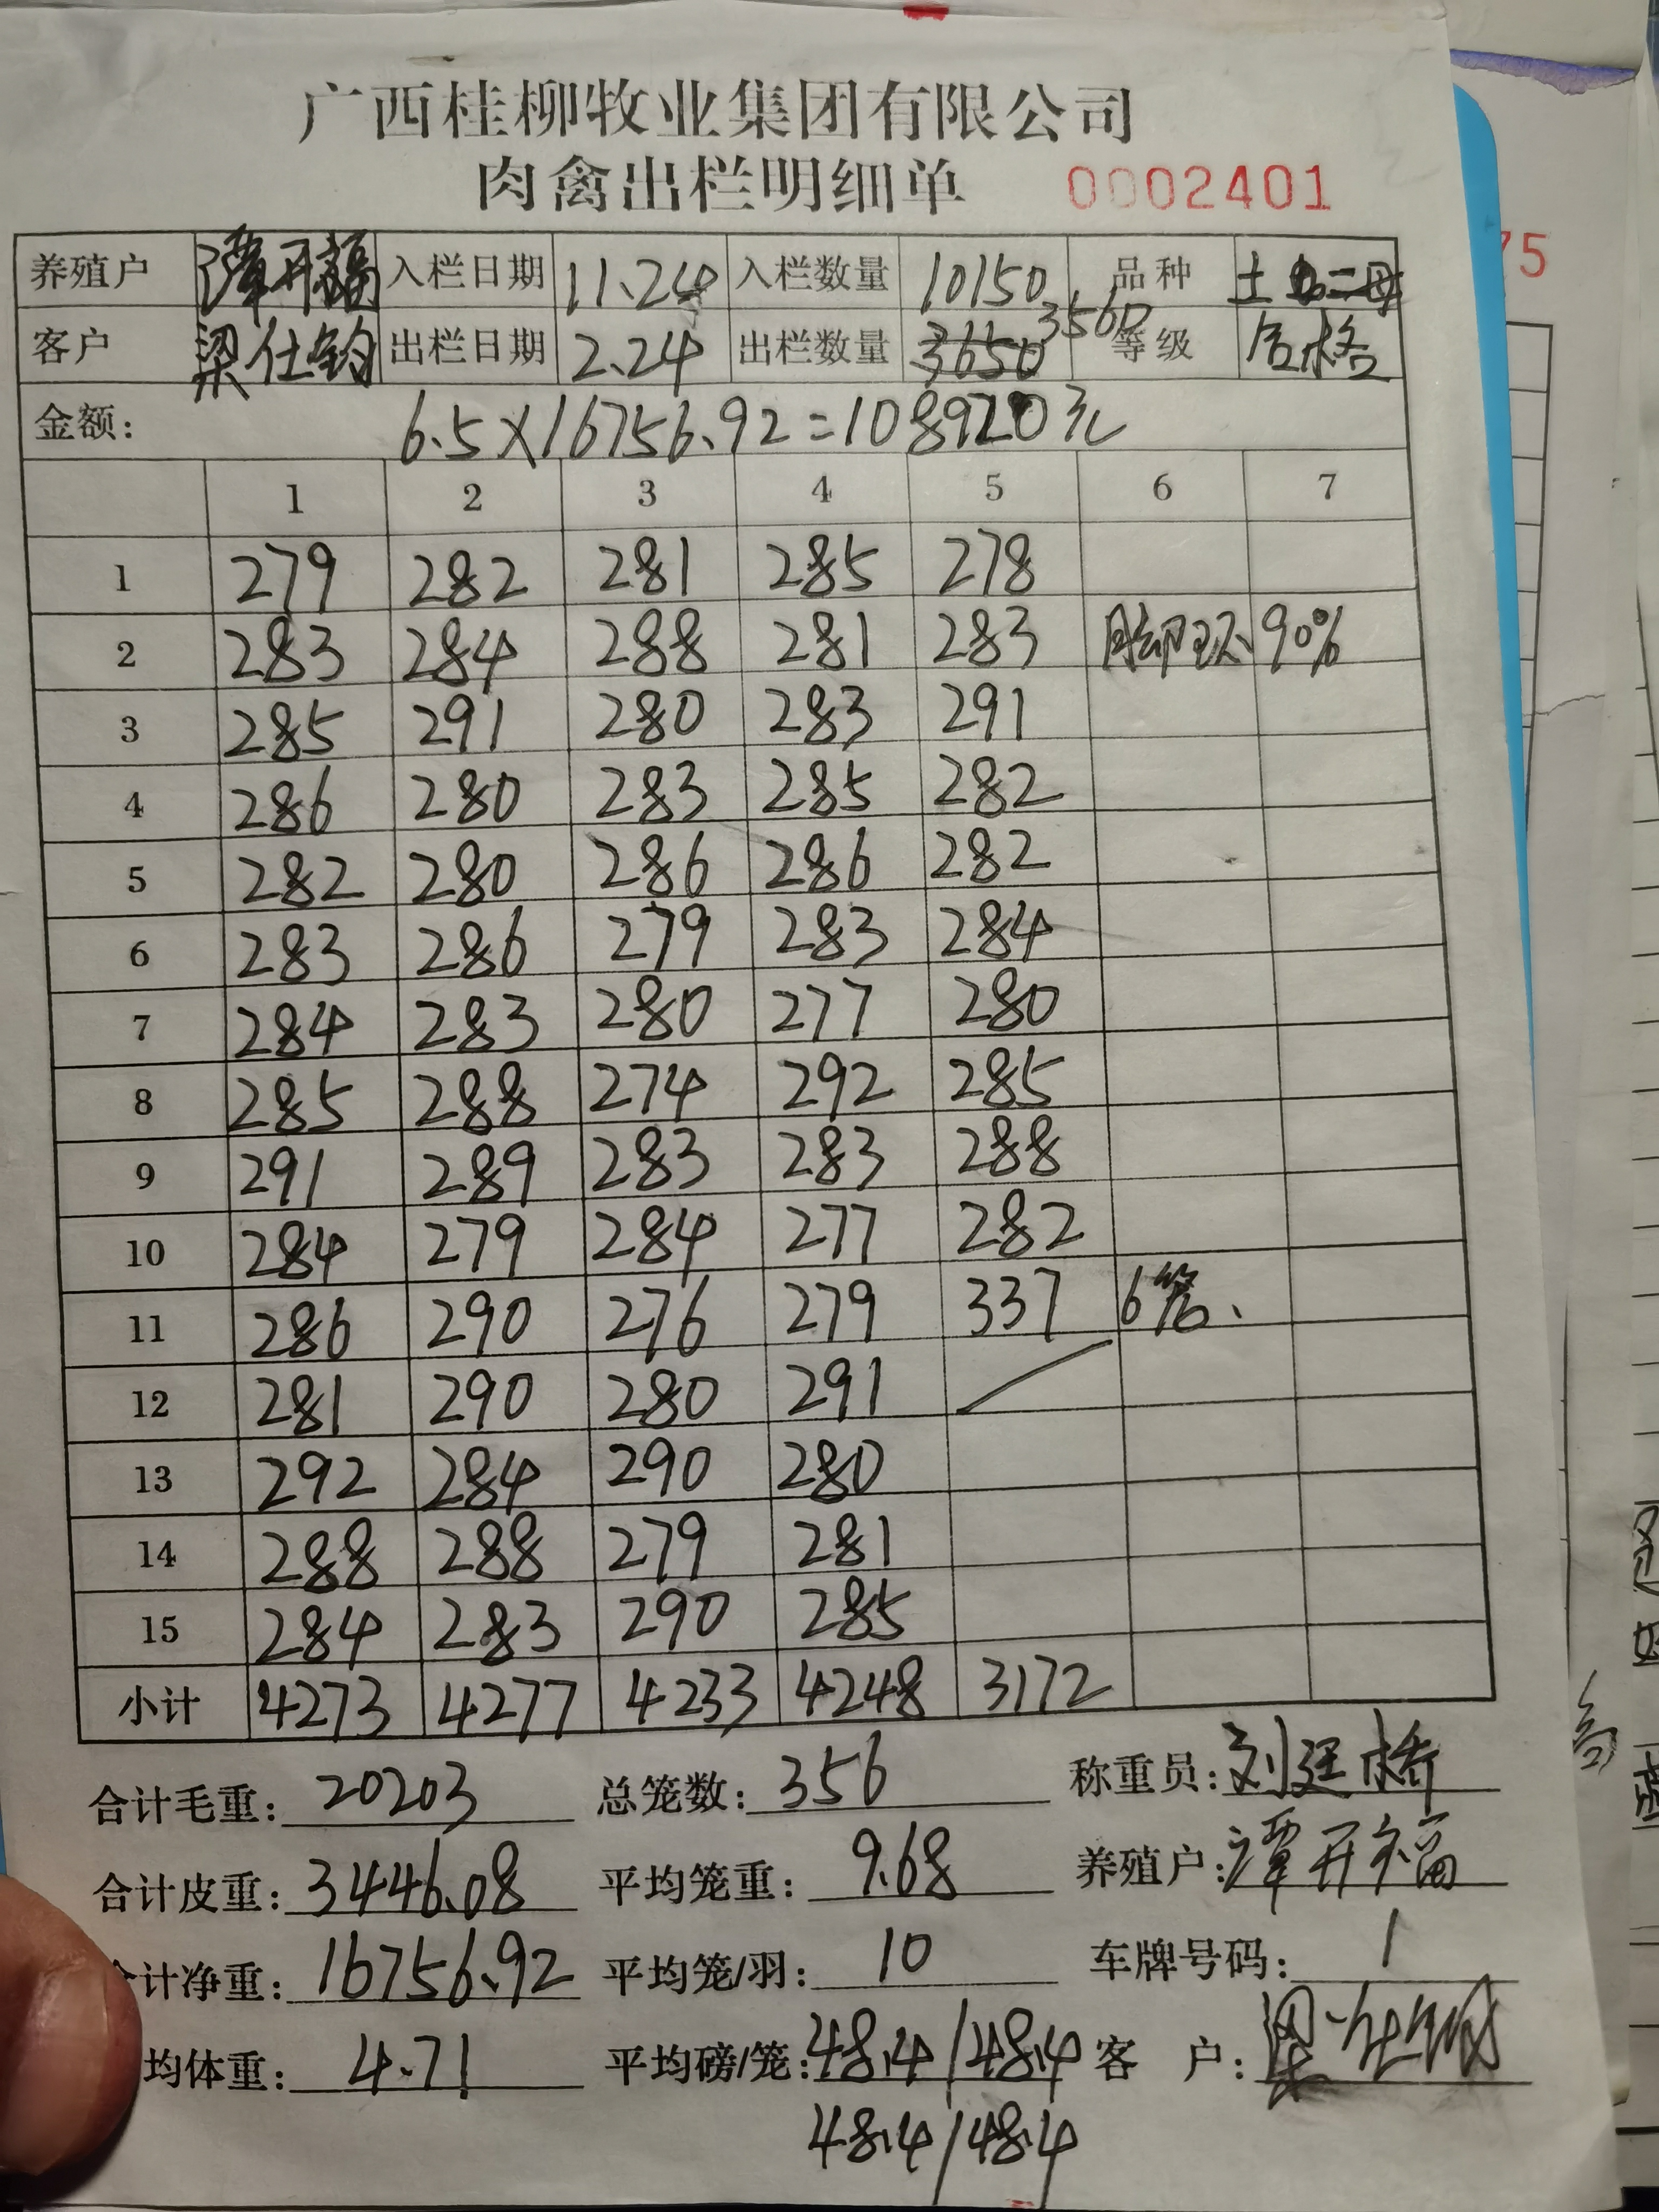 广西桂柳牧业集团有限公司
肉禽出栏明细单 0002401
75
养殖户 谭开福 入栏日期 11.24 入栏数量 10150 品种 土
客户 梁仕钧 出栏日期 2.24 出栏数量 3650 3560 等级 合格
金额: 6.5×16756.92=108920元
1 2 3 4 5 6 7
1 279 282 281 285 278
2 283 284 288 281 283 90%
3 285 291 280 283 291
4 286 280 283 285 282
5 282 280 286 286 282
6 283 286 279 283 284
7 284 283 280 277 280
8 285 288 274 292 285
9 291 289 283 283 288
10 284 279 284 277 282
11 286 290 276 279 337 6笼、
12 281 290 280 291
13 292 284 290 280
14 288 288 279 281
15 284 283 290 285
小计 4273 4277 4233 4248 3172
合计毛重: 20203 总笼数: 356 称重员: 刘廷桥
合计皮重: 3446.08 平均笼重: 9.68 养殖户: 谭开福
计净重: 16756.92 平均笼/羽: 10 车牌号码: 1
均体重: 4.71 平均磅/笼: 48.4/48.4 客 户:
48.4/48.4